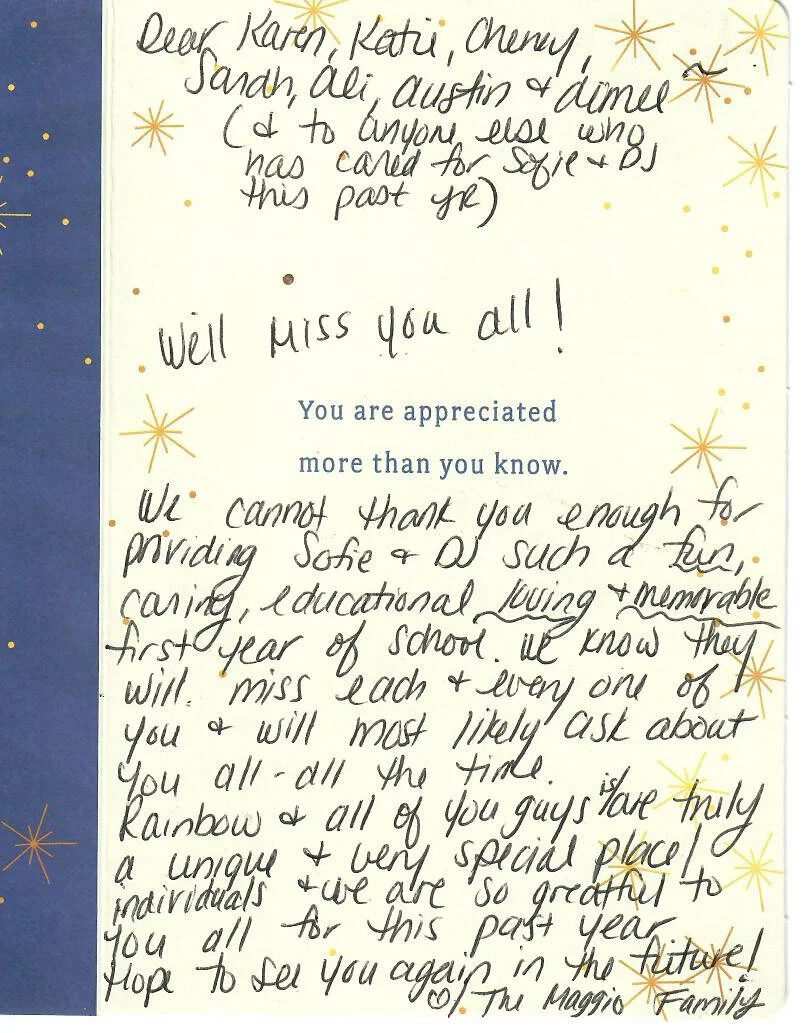 Dear Karen, Katie, Cheney,
Sarah, Ali, Austin & Aimee ~
(& to anyone else who
has cared for Sofie & DJ
this past yr)
We'll miss you all!
You are appreciated
more than you know.
We cannot thank you enough for
providing Sofie & DJ such a fun,
caring, educational, loving & memorable
first year of school. We know they
will miss each & every one of
you & will most likely ask about
you all - all the time.
Rainbow & all of you guys is/are truly
a unique & very special place/
individuals & we are so greatful to
you all for this past year
Hope to see you again in the future!
♡, The Maggio Family